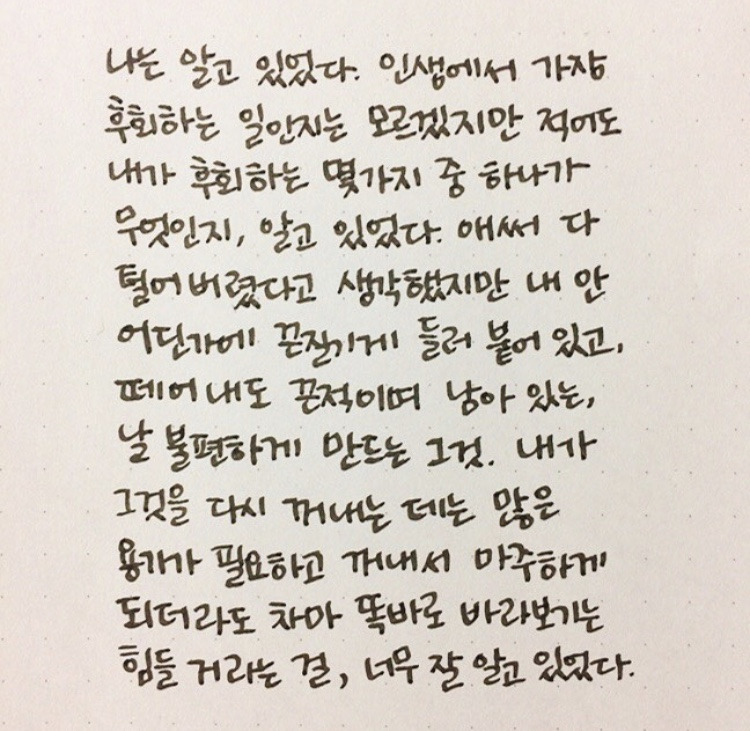 나는 알고 있었다. 인생에서 가장
후회하는 일인지는 모르겠지만 적어도
내가 후회하는 몇가지 중 하나가
무엇인지, 알고 있었다. 애써 다
털어버렸다고 생각했지만 내 안
어딘가에 끈질기게 들러 붙어 있고,
떼어내도 끈적이며 남아 있는,
날 불편하게 만드는 그것. 내가
그것을 다시 꺼내는 데는 많은
용기가 필요하고 꺼내서 마주하게
되더라도 차마 똑바로 바라보기는
힘들 거라는 걸, 너무 잘 알고 있었다.